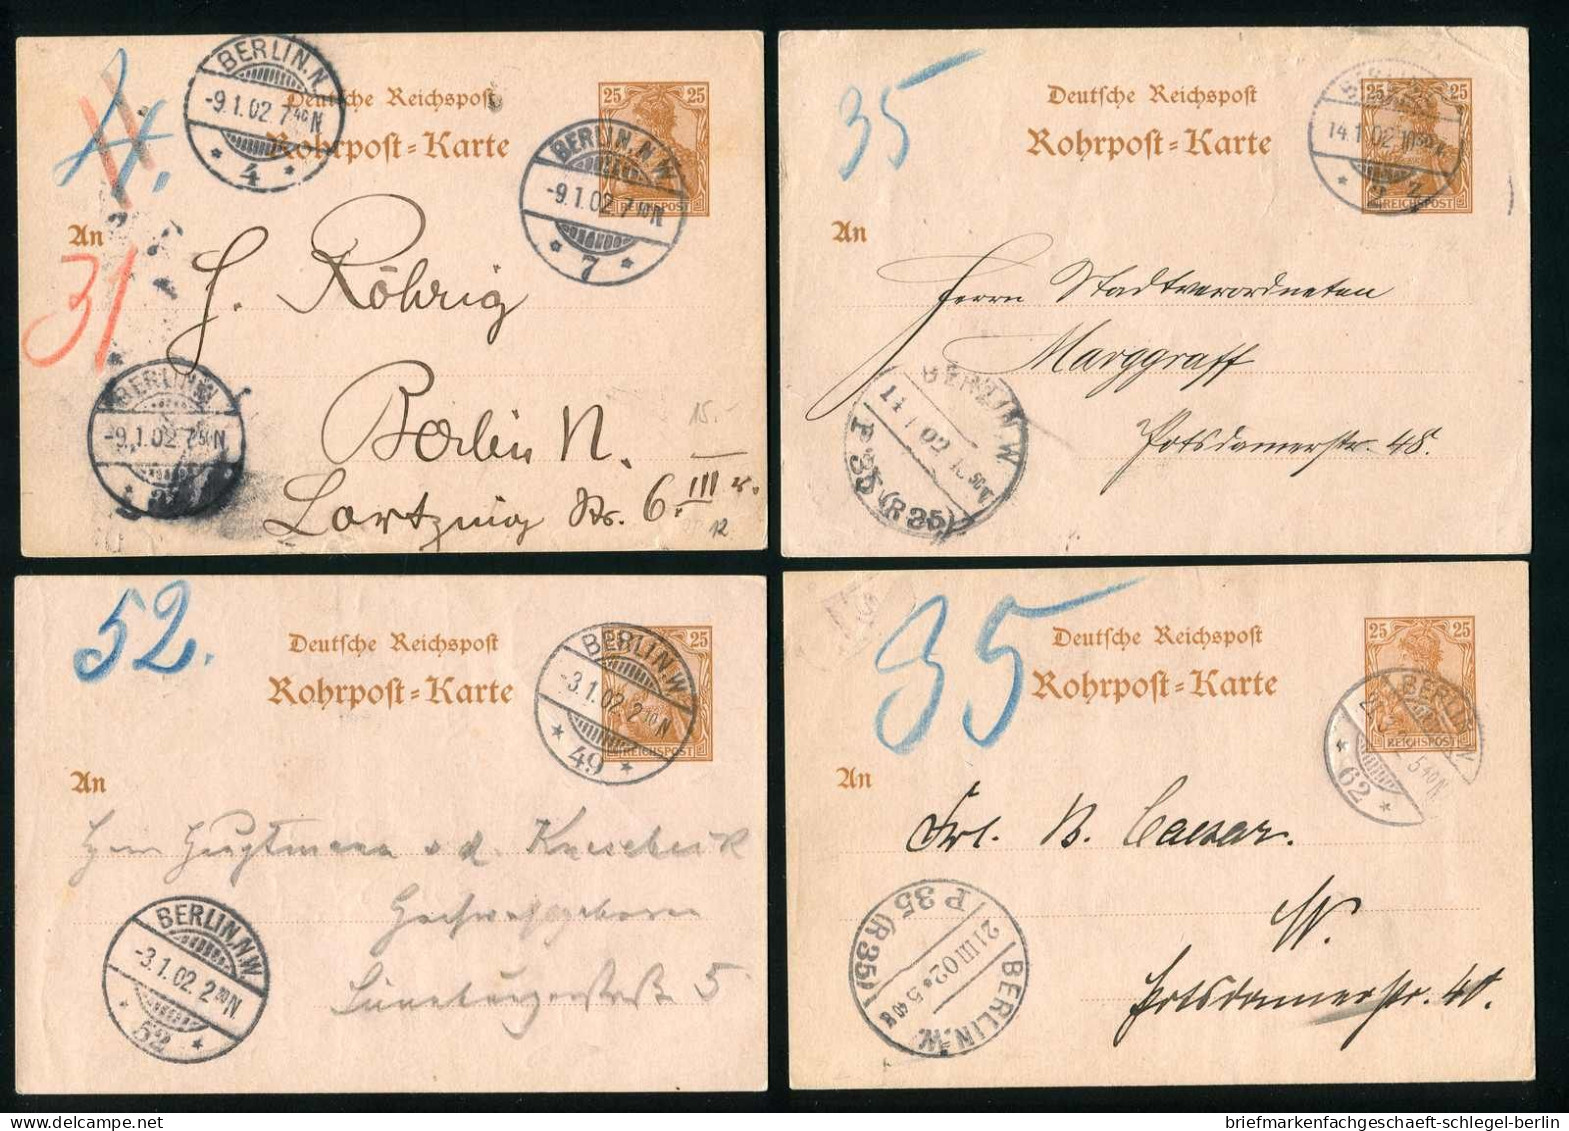 4.
BERLIN.N.
-9.1.02 7 40 N
* 4 *
Deutsche Reichspost
Rohrpost=Karte
25 25
REICHSPOST
BERLIN.N.W
-9.1.02.7 10 N
* 7 *
An
31
H. Röhrig
Berlin N.
Lortzing Str. 6. III r.
15.-
BERLIN.W
-9.1.02 7 50 N
35
Deutsche Reichspost
Rohrpost=Karte
25 25
REICHSPOST
14.1.02
An
Herrn Stadtverordneten
Marggraff
Potsdamerstr. 48.
BERLIN.W
P 35 (R 35)
52.
Deutsche Reichspost
Rohrpost=Karte
25 25
REICHSPOST
BERLIN.W
-3.1.02.2 10 N
* 49 *
An
Herrn Hauptmann v. d. Knesebeck
Hochwohlgeboren
Lüneburgerstraße 5
BERLIN.N.W
-3.1.02.2 20 N
* 52 *
35
Deutsche Reichspost
Rohrpost=Karte
25 25
REICHSPOST
BERLIN.W
5 40 N
* 62 *
An
Frl. B. Caesar.
W.
Potsdamerstr. 40.
BERLIN.W.
21 III 02 * 5 40 N
P 35 (R 35)
briefmarkenfachgeschaeft-schlegel-berlin